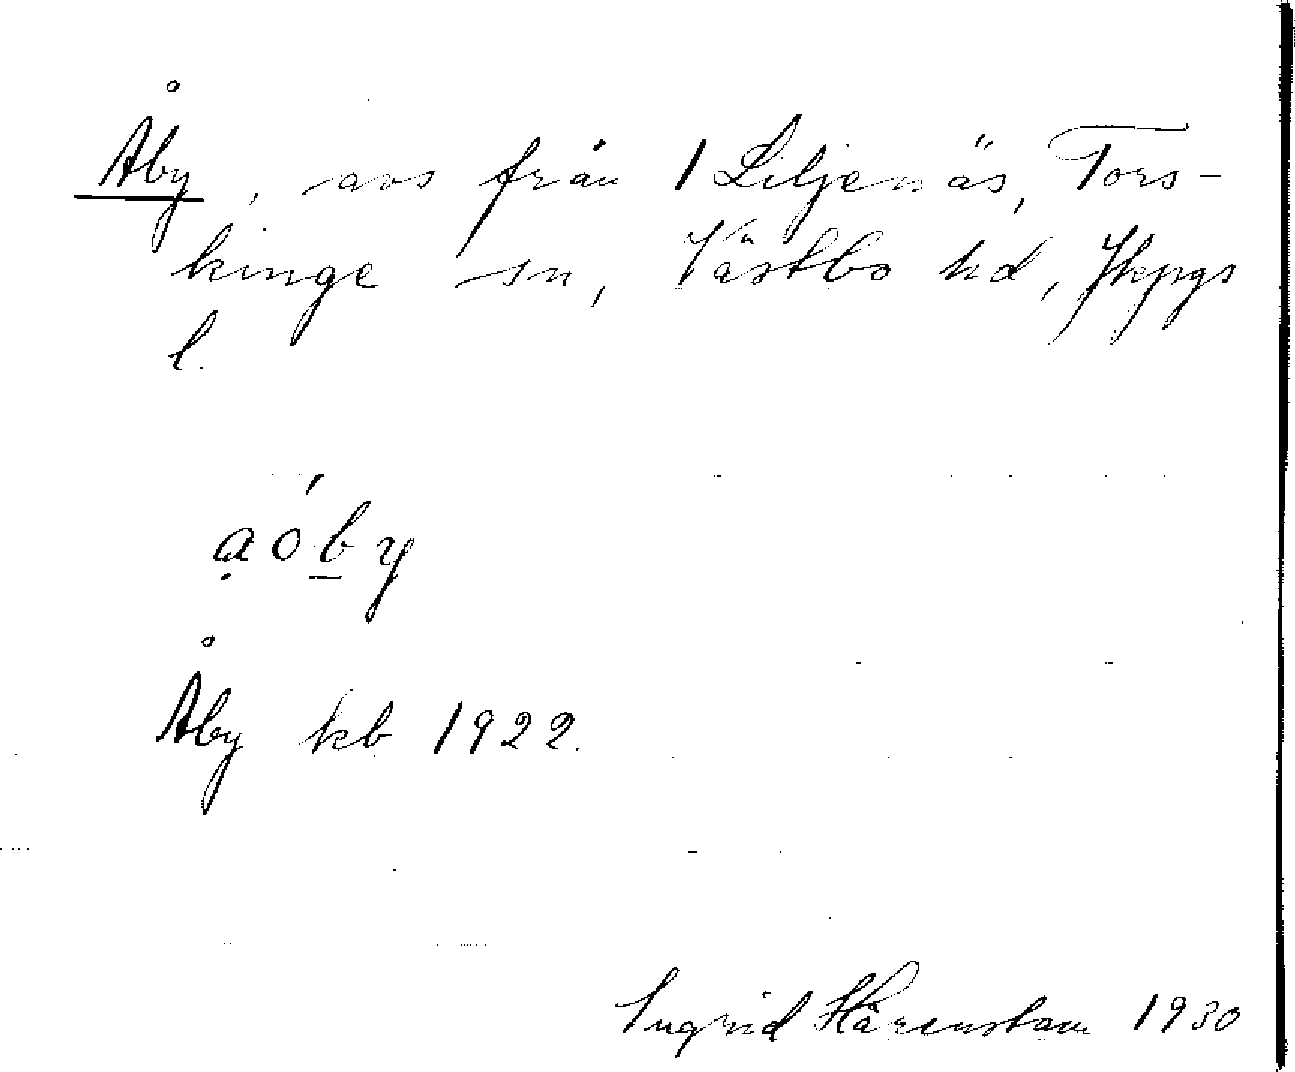 Åby, avs från 1 Liljenäs, Tors-
kinge sn, Västbo hd, Jkpgs
l.
ạóḇy
Åby kb 1922.
Ingrid Härenstam 1930